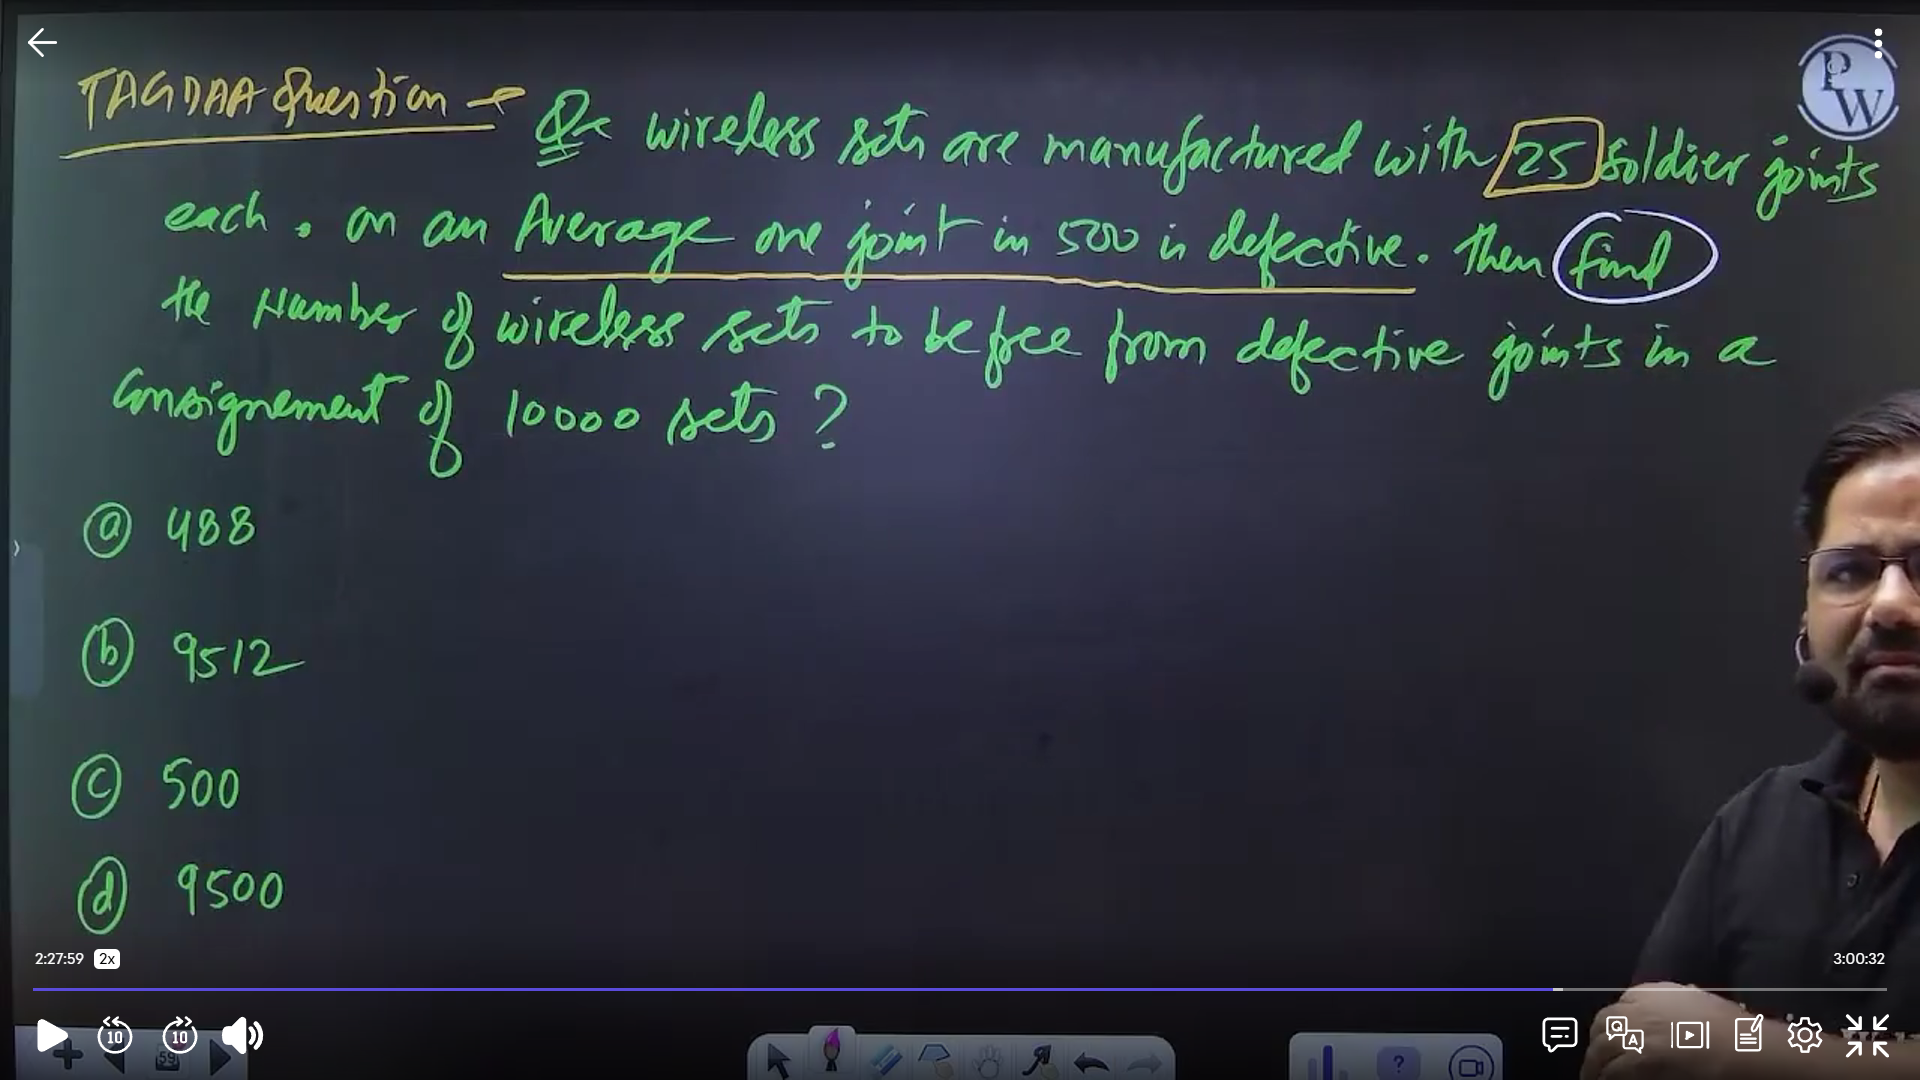 TAGDAA Question → Q< wireless sets are manufactured with 25 soldier joints
each. on an Average one joint in 500 is defective. Then find
the Number of wireless sets to be free from defective joints in a
consignement of 10000 sets ?
(a) 488
(b) 9512
(c) 500
(d) 9500
PW
2:27:59 2x 3:00:32
10 10
59
?